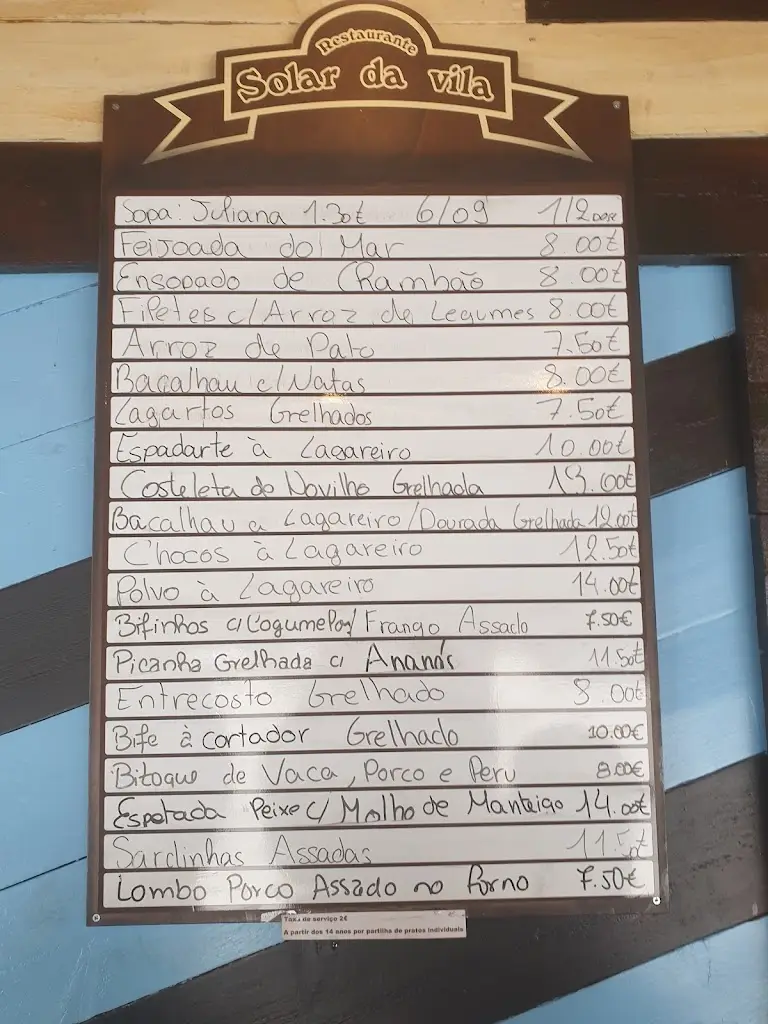 Restaurante
Solar da vila
Sopa: Juliana 1.30€ 6/09 1/2 DOSE
Feijoada do Mar 8.00€
Ensopado de Chambão 8.00€
Filetes c/Arroz de Legumes 8.00€
Arroz de Pato 7.50€
Bacalhau c/Natas 8.00€
Lagartos Grelhados 7.50€
Espadarte à Lagareiro 10.00€
Costeleta de Novilho Grelhada 13.00€
Bacalhau à Lagareiro/Dourada Grelhada 12.00€
Chocos à Lagareiro 12.50€
Polvo à Lagareiro 14.00€
Bifinhos c/Cogumelos/ Frango Assado 7.50€
Picanha Grelhada c/ Ananás 11.50€
Entrecosto Grelhado 8.00€
Bife à cortador Grelhado 10.00€
Bitoque de Vaca, Porco e Peru 8.00€
Espetada Peixe c/ Molho de Manteiga 14.00€
Sardinhas Assadas 11.50€
Lombo Porco Assado no forno 7.50€
Taxa de serviço 2€
A partir dos 14 anos por partilha de pratos individuais